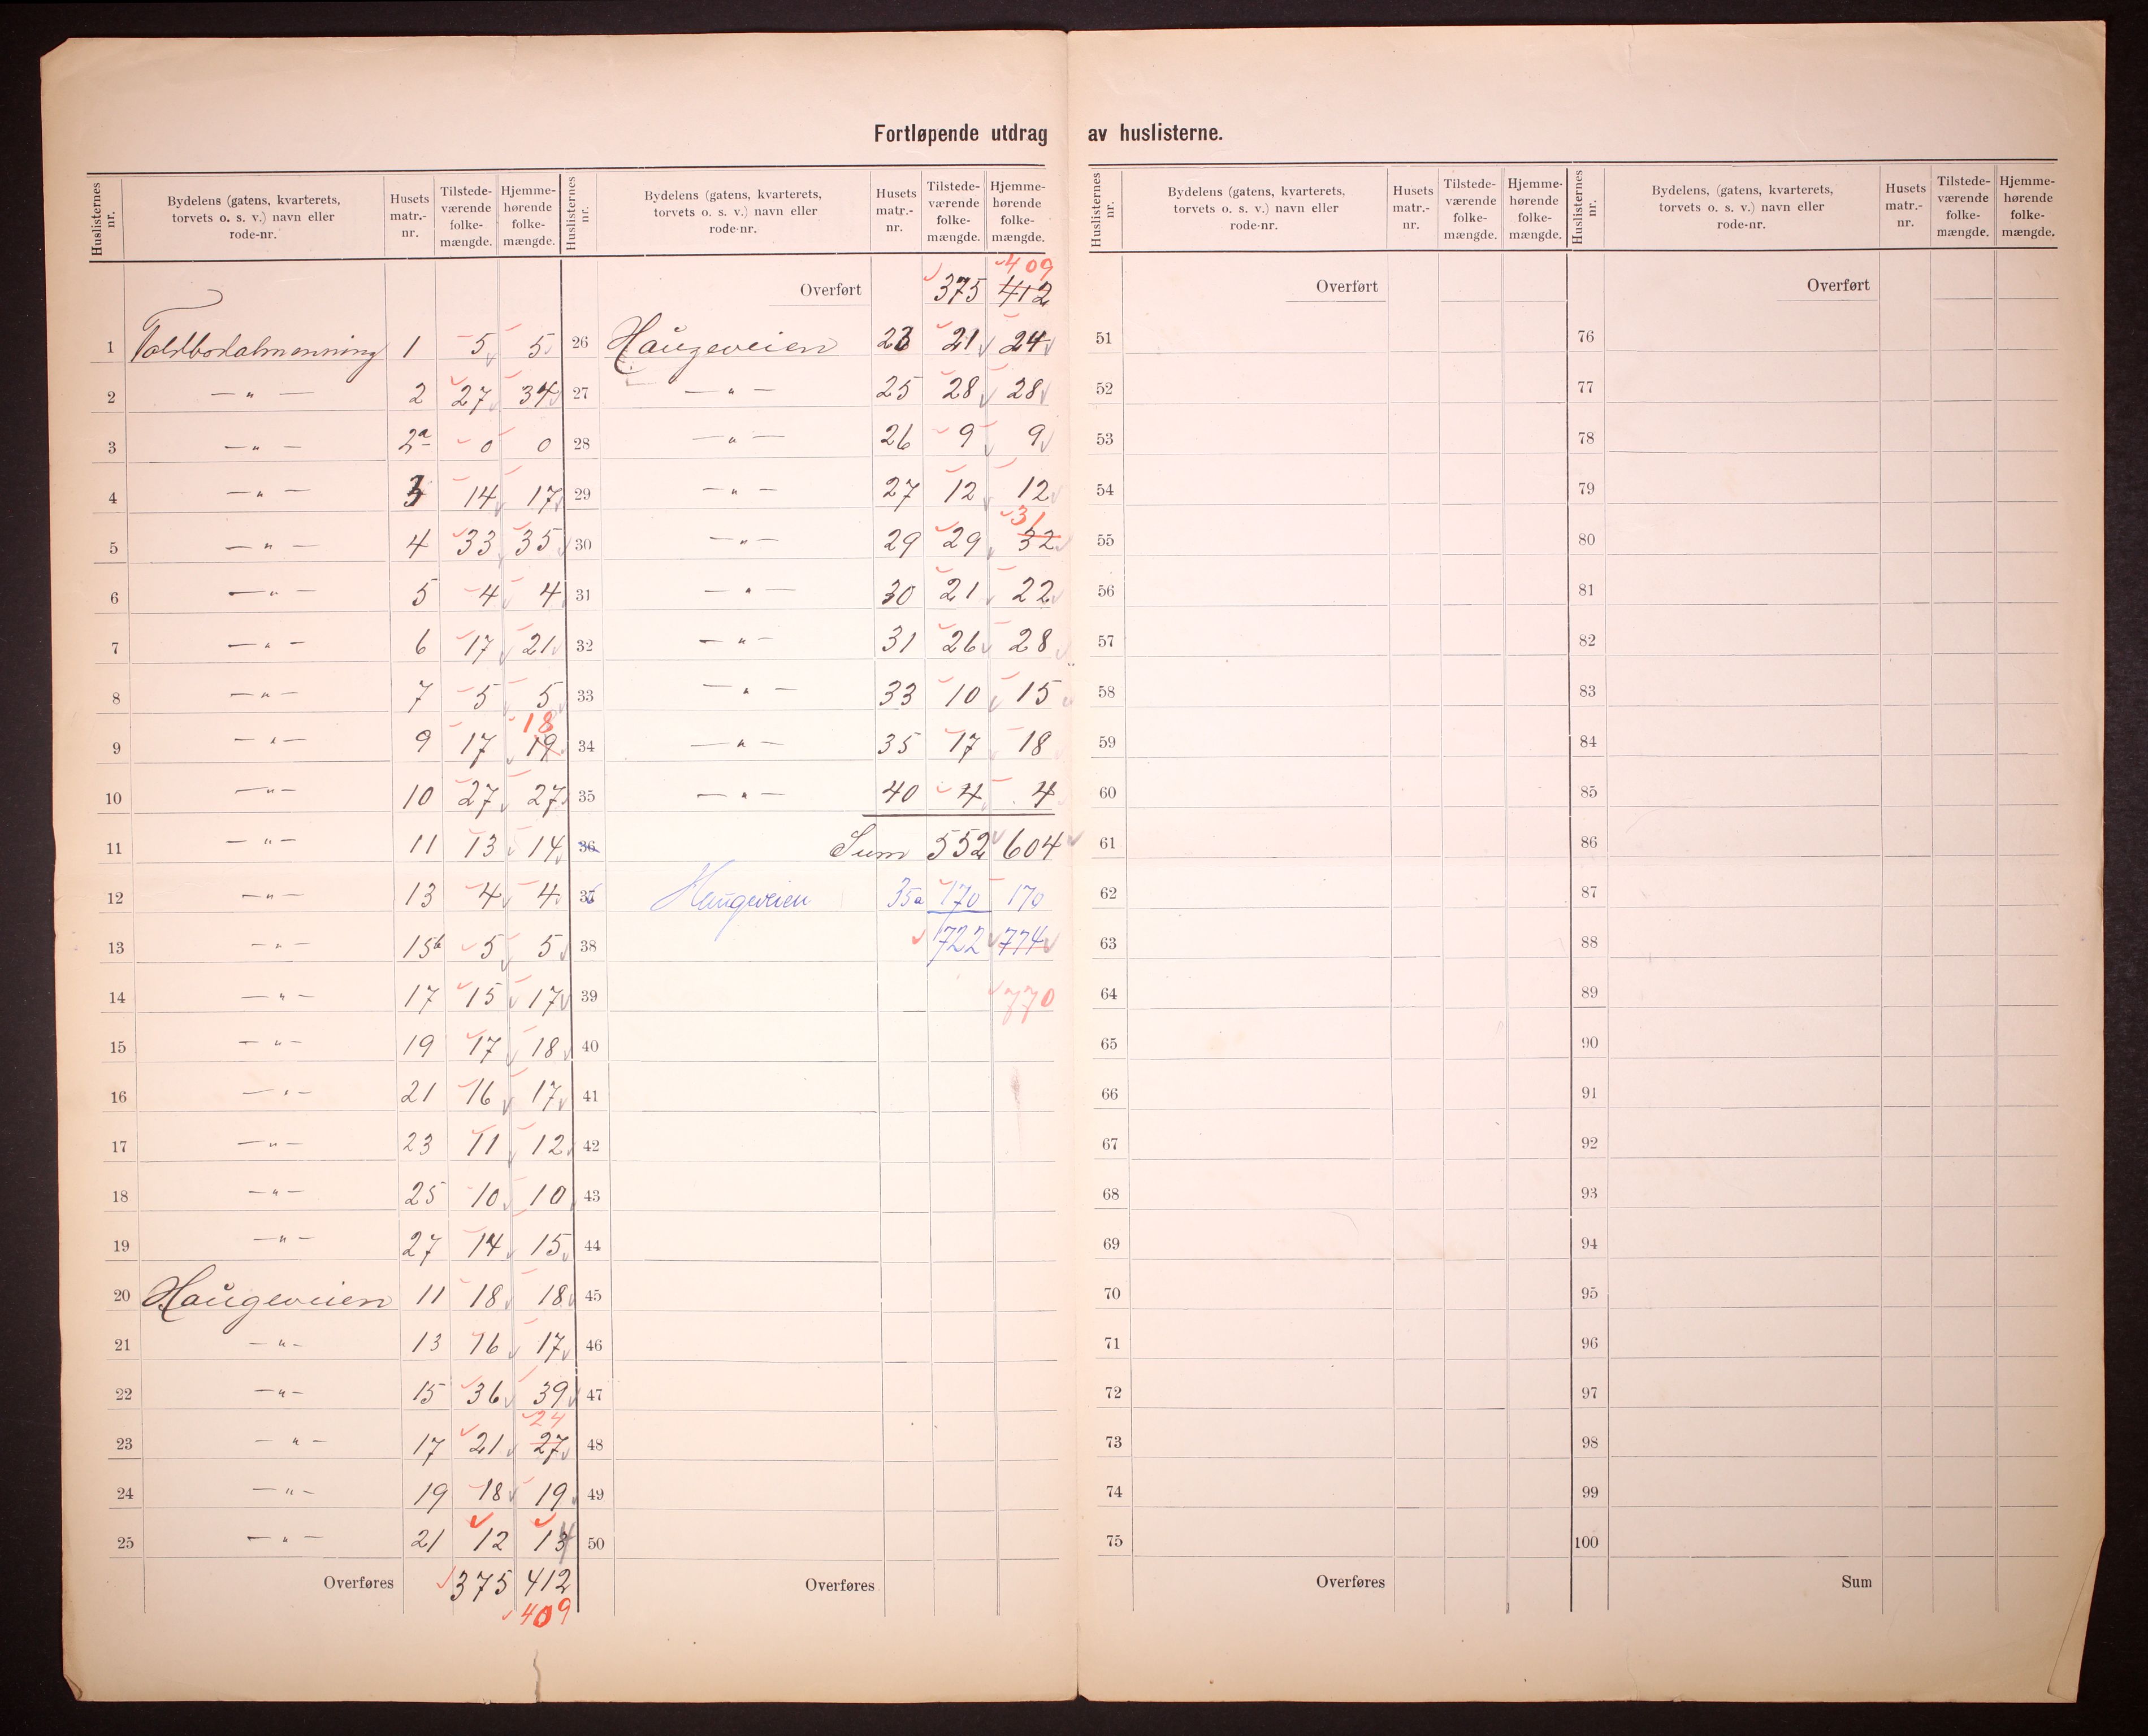 Fortløpende utdrag av huslisterne.
Huslisternes nr. Bydelens (gatens, kvarterets, torvets o. s. v.) navn eller rode-nr. Husets matr.-nr. Tilstede-værende folke-mængde. Hjemme-hørende folke-mængde.
1 Toldbodalmenning 1 5 5
2 — „ — 2 27 34
3 — „ — 2a 0 0
4 — „ — 3 14 17
5 — „ — 4 33 35
6 — „ — 5 4 4
7 — „ — 6 17 21
8 — „ — 7 5 5
9 — „ — 9 17 19 18
10 — „ — 10 27 27
11 — „ — 11 13 14
12 — „ — 13 4 4
13 — „ — 15b 5 5
14 — „ — 17 15 17
15 — „ — 19 17 18
16 — „ — 21 16 17
17 — „ — 23 11 12
18 — „ — 25 10 10
19 — „ — 27 14 15
20 Haugeveien 11 18 18
21 — „ — 13 16 17
22 — „ — 15 36 39
23 — „ — 17 21 27 24
24 — „ — 19 18 19
25 — „ — 21 12 14
Overføres 375 412
409
Huslisternes nr. Bydelens (gatens, kvarterets, torvets o. s. v.) navn eller rode-nr. Husets matr.-nr. Tilstede-værende folke-mængde. Hjemme-hørende folke-mængde.
409
Overført 375 412
26 Haugeveien 23 21 24
27 — „ — 25 28 28
28 — „ — 26 9 9
29 — „ — 27 12 12
30 — „ — 29 29 32 31
31 — „ — 30 21 22
32 — „ — 31 26 28
33 — „ — 33 10 15
34 — „ — 35 17 18
35 — „ — 40 4 4
36 Sum 552 604
36 Haugeveien 35a 170 170
38 722 774
39 770
40
41
42
43
44
45
46
47
48
49
50
Overføres
Huslisternes nr. Bydelens (gatens, kvarterets, torvets o. s. v.) navn eller rode-nr. Husets matr.-nr. Tilstede-værende folke-mængde. Hjemme-hørende folke-mængde.
Overført
51
52
53
54
55
56
57
58
59
60
61
62
63
64
65
66
67
68
69
70
71
72
73
74
75
Overføres
Huslisternes nr. Bydelens (gatens, kvarterets, torvets o. s. v.) navn eller rode-nr. Husets matr.-nr. Tilstede-værende folke-mængde. Hjemme-hørende folke-mængde.
Overført
76
77
78
79
80
81
82
83
84
85
86
87
88
89
90
91
92
93
94
95
96
97
98
99
100
Sum